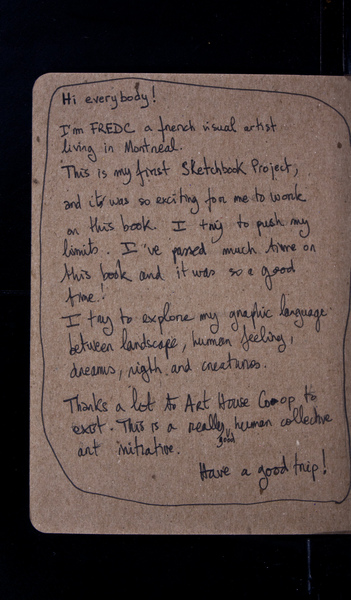 Hi everybody!
I'm FREDC a french visual artist
living in Montreal.
This is my first Sketchbook Project,
and it was so exciting for me to work
on this book. I try to push my
limits. I've passed much time on
this book and it was so a good
time!
I try to explore my graphic language
between landscape, human feeling,
dreams, nigth and creatures.
Thanks a lot to Art House Co-op to
exist. This is a really good human collective
art initiative.
Have a good trip!